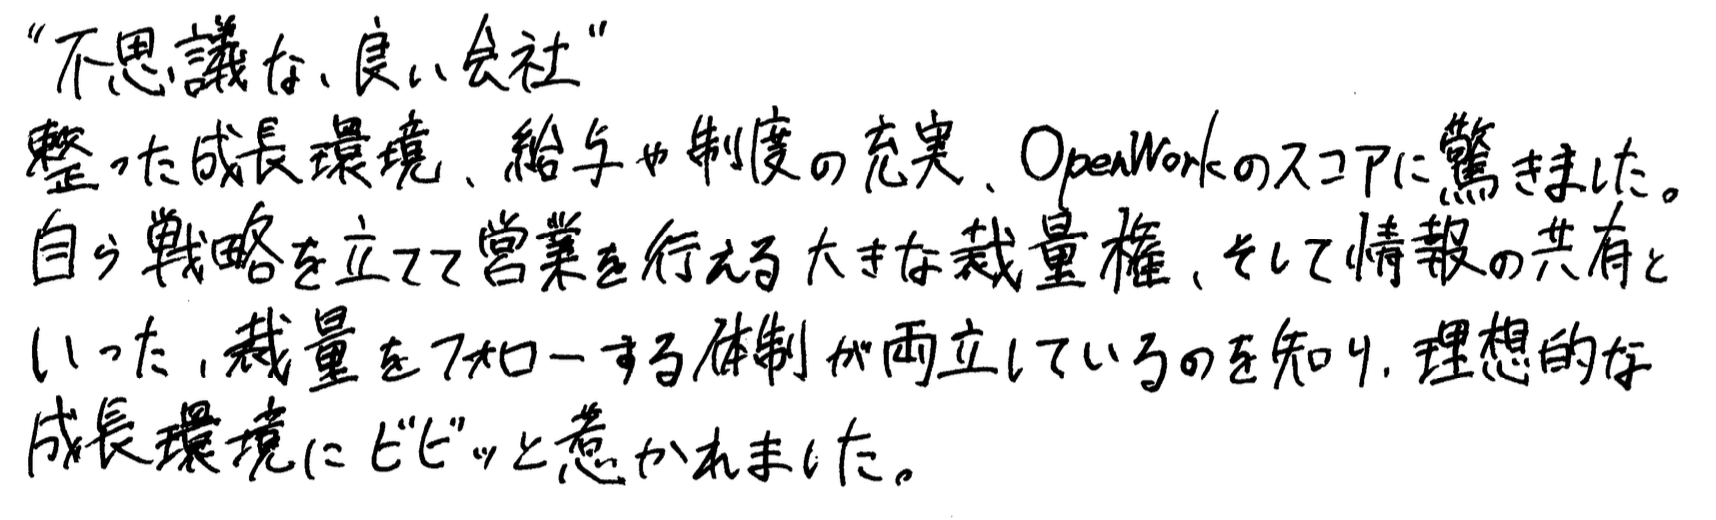 “不思議な、良い会社”
整った成長環境、給与や制度の充実、OpenWorkのスコアに驚きました。
自ら戦略を立てて営業を行える大きな裁量権、そして情報の共有と
いった、裁量をフォローする体制が両立しているのを知り、理想的な
成長環境にビビッと惹かれました。